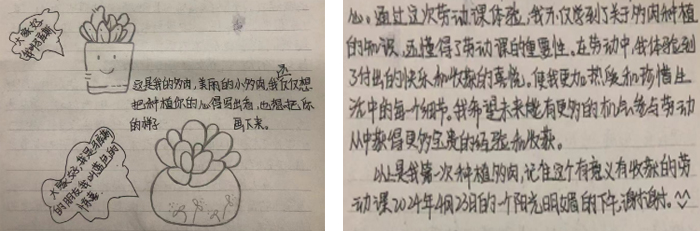 大家好
我叫
这是我的多肉，美丽的小多肉，我不仅仅想
还
把种植你的心得写出来，也想把你
的样子 画下来。
大家好，我是
的朋友我叫遇见的
惊喜
心。通过这次劳动课体验，我不仅学到了关于多肉种植
的知识，还懂得了劳动课的重要性。在劳动中，我体验到
了付出的快乐和收获的喜悦。使我更加热爱和珍惜生
活中的每一个细节。我希望未来能有更多的机会参与劳动
从中获得更多宝贵的经验和收获。
以上是我第一次种植多肉，记住这个有意义有收获的劳
动课2024年4月23日的一个阳光明媚的下午，谢谢！